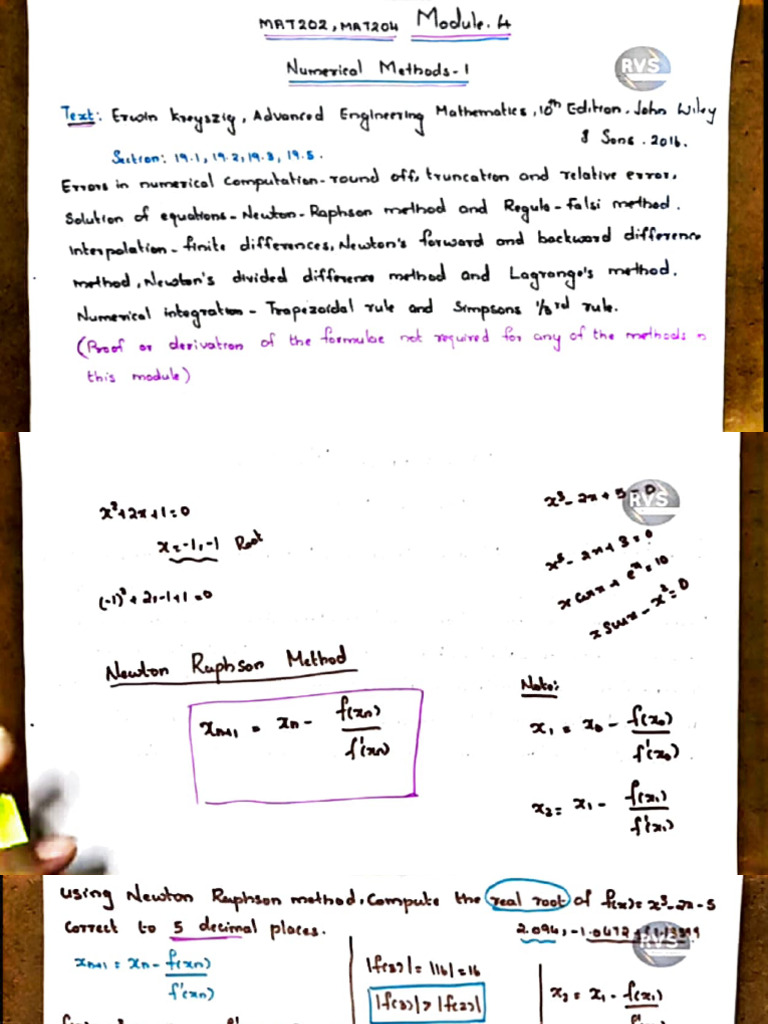 MAT202, MAT204 Module. 4
RVS
Numerical Methods-1
Text: Erwin Kreyszig, Advanced Engineering Mathematics, 10th Edition, John Wiley
& Sons. 2016.
Section: 19.1, 19.2, 19.3, 19.5.
Errors in numerical computation-round off, truncation and relative error,
Solution of equations-Newton-Raphson method and Regula-falsi method.
Interpolation-finite differences, Newton's forward and backward difference
method, Newton's divided difference method and Lagrange's method.
Numerical integration-Trapezoidal rule and Simpsons 1/3rd rule.
(Proof or derivation of the formulae not required for any of the methods
this module)
x²+2x+1=0
x=-1,-1 Root
(-1)²+2,-1+1=0
x³-2x+5=0
RVS
x cosx + eˣ=10
Newton Raphson Method
xn+1 = xn - f(xn)/f'(xn)
Note:
x1 = x0 - f(x0)/f'(x0)
x2 = x1 - f(x1)/f'(x1)
using Newton Raphson method, Compute the real root of f(x)=x³-2x-5
correct to 5 decimal places.
2.094, -1.0472
RVS
xn+1 = xn - f(xn)/f'(xn)
|f(3)|=|16|=16
|f(3)|>|f(2)|
x2 = x1 - f(x1)